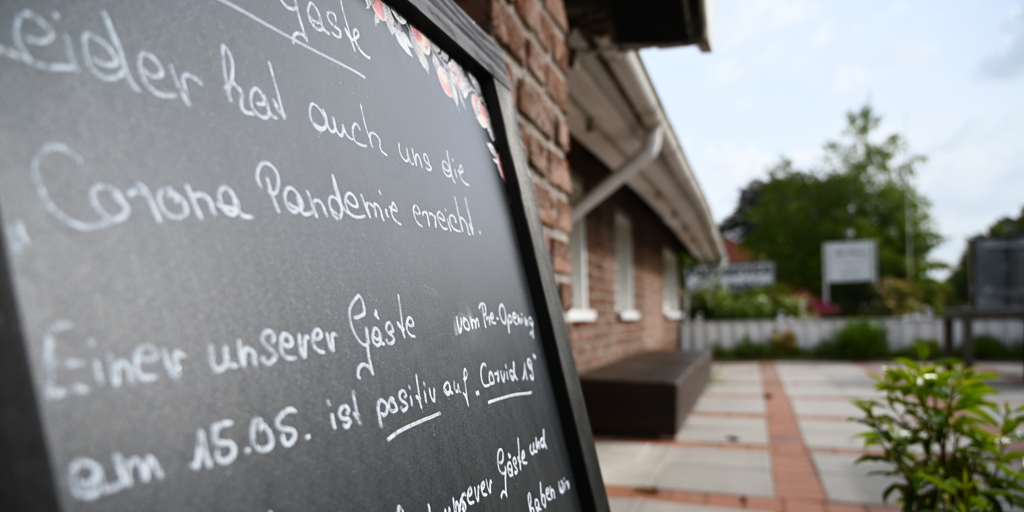 Gäste
Leider hat auch uns die
Corona Pandemie erreicht.
Einer unserer Gäste vom Pre-Opening
am 15.05. ist positiv auf "Corvid 19"
unserer Gäste und
haben wir